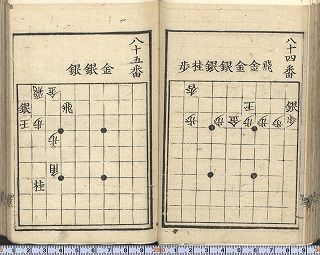 八十四番
飛金金銀銀桂歩
香
銀王
歩歩歩歩金歩歩
八十五番
金銀銀
金飛
飛銀
歩王
歩
角
桂